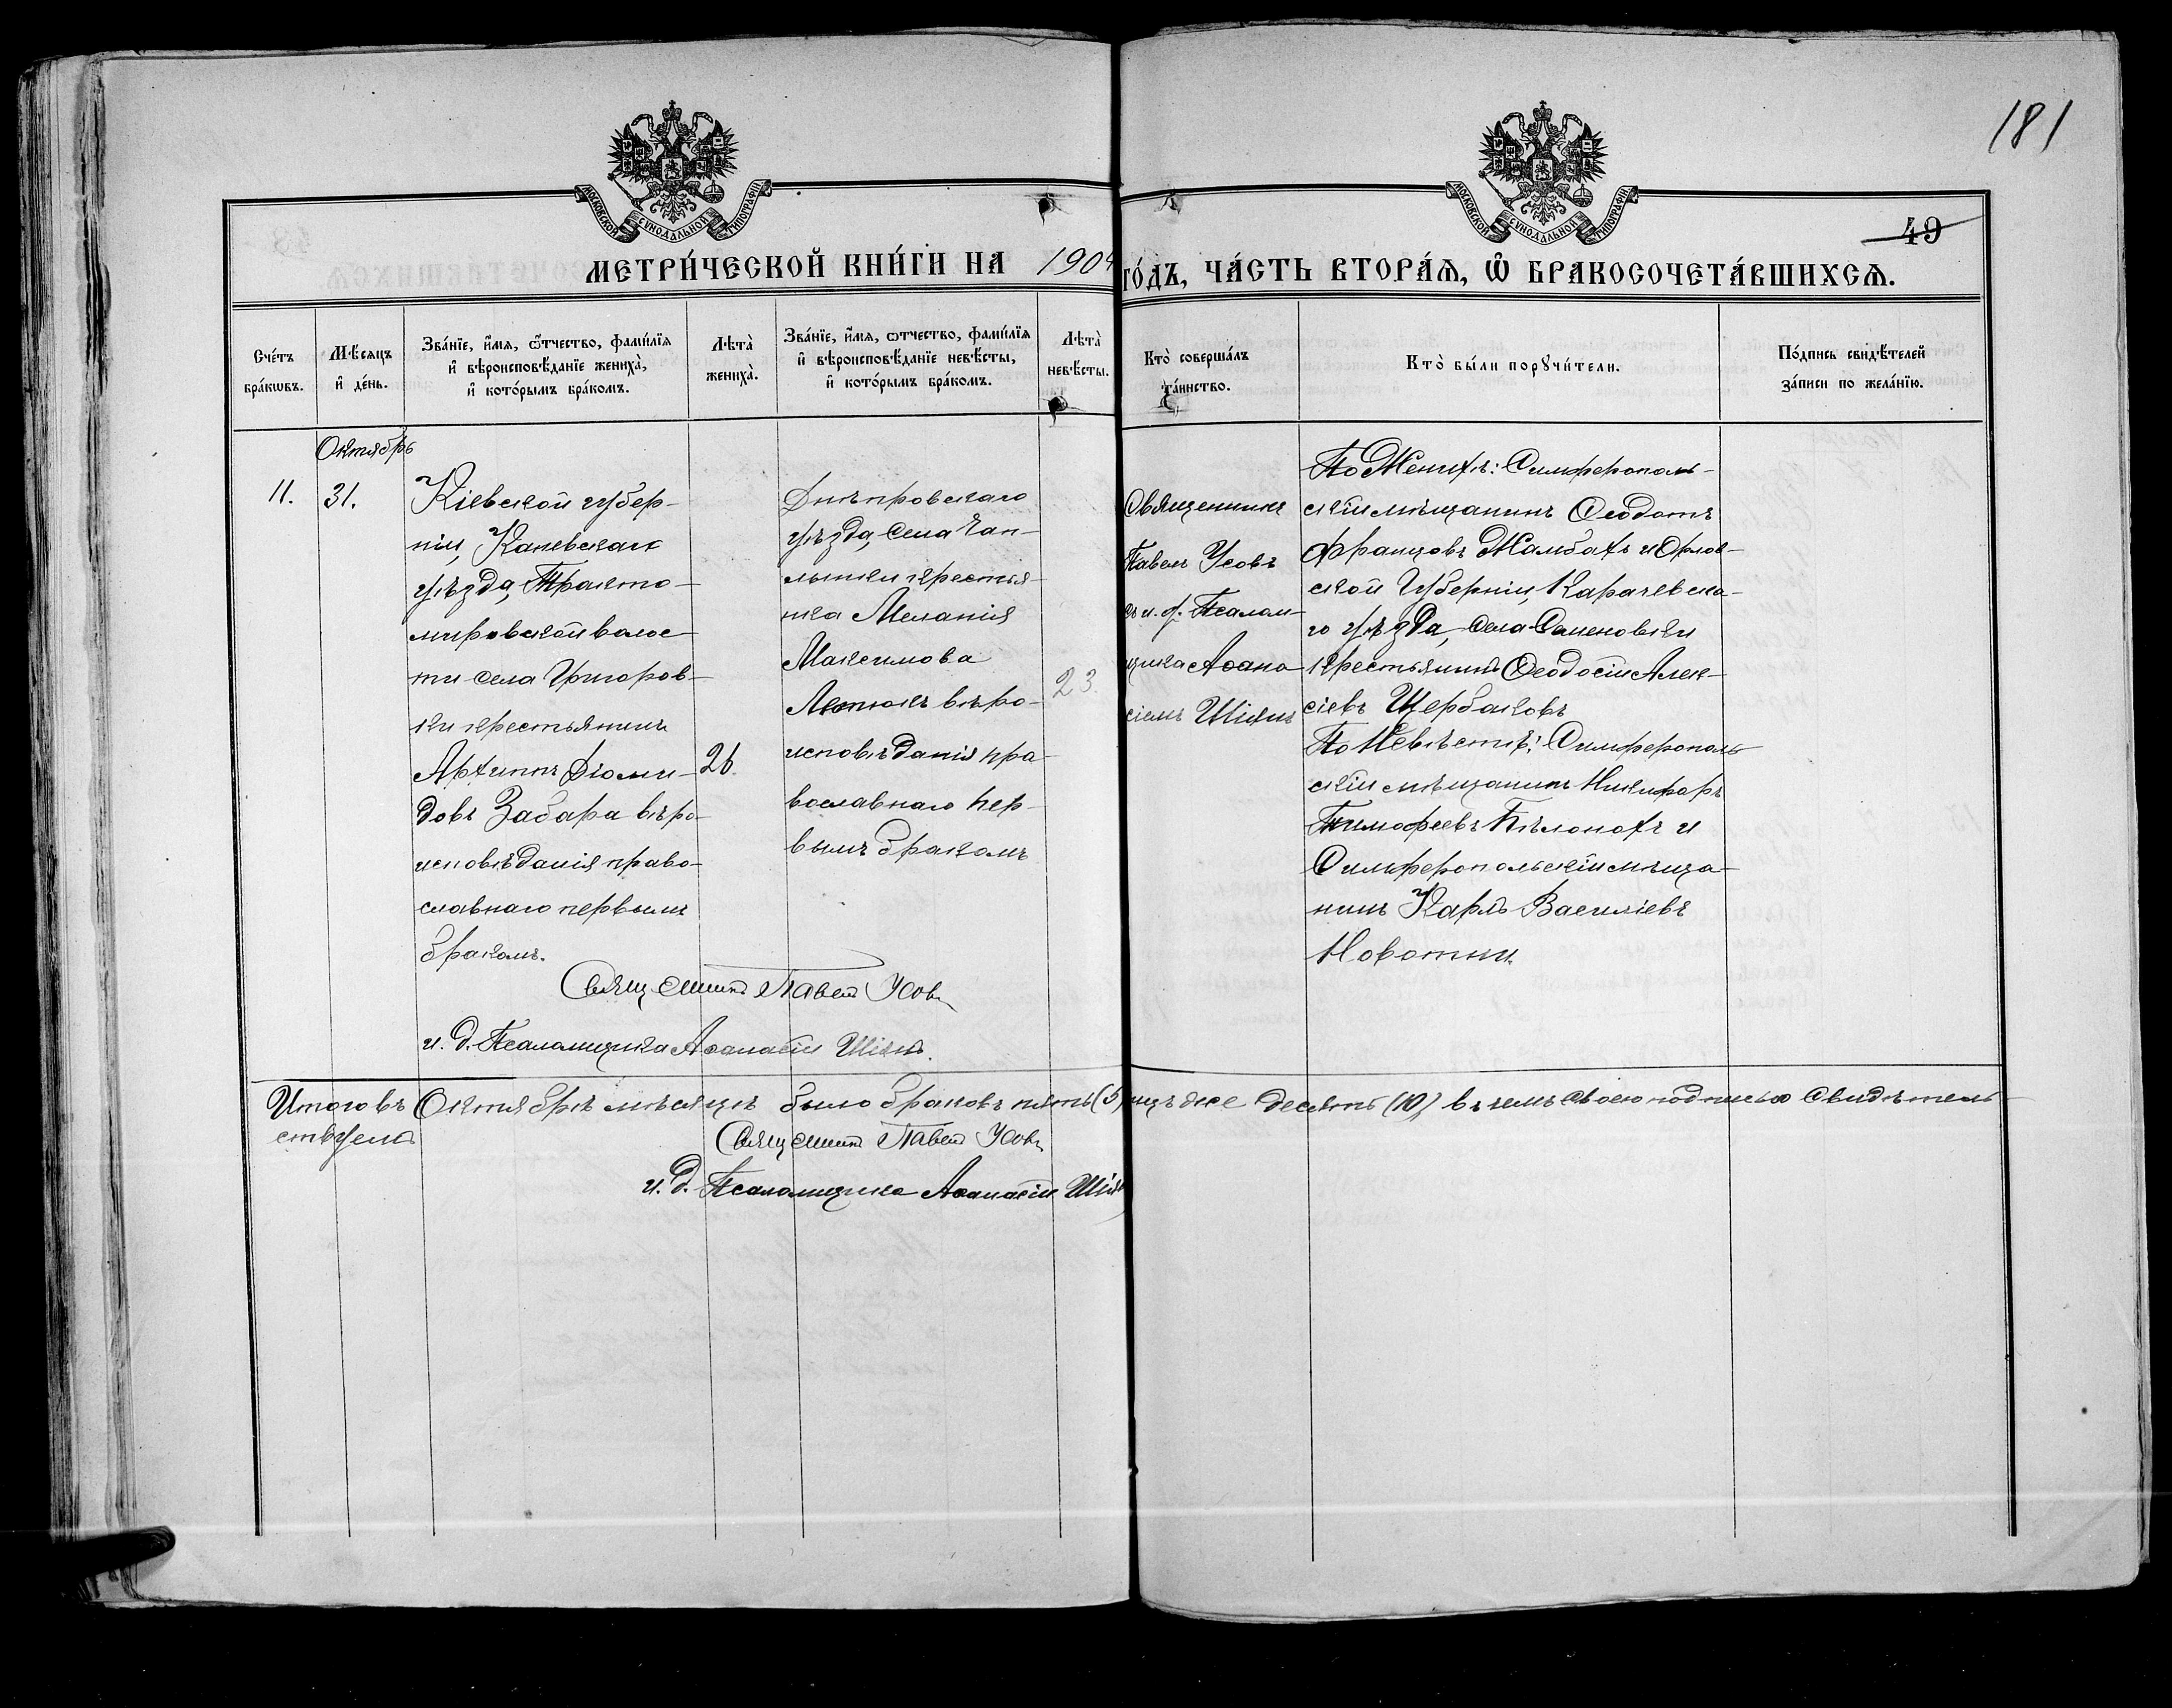 181
49
МОСКОВСКОЙ СѴНОДАЛЬНОЙ ТИПОГРАФІИ
МОСКОВСКОЙ СѴНОДАЛЬНОЙ ТИПОГРАФІИ
МЕТРИ́ЧЕСКОЙ КНИ́ГИ НА 1904 ГО́ДЪ, ЧА́СТЬ ВТОРА́Ѧ, Ѽ БРАКОСОЧЕТА́ВШИХСѦ.
Сче́тъ бра́кѡвъ.
Мѣ́сяцъ и҆ де́нь.
Зва́нїе, и҆́мѧ, ѻ҆́тчество, фами́лїѧ
и҆ вѣроисповѣ́данїе жениха̀,
и҆ кото́рымъ бра́комъ.
Лѣта̀ жениха̀.
Зва́нїе, и҆́мѧ, ѻтчество, фами́лїѧ
и҆ вѣроисповѣ́данїе невѣ́сты,
и҆ кото́рымъ бра́комъ.
Лѣта̀ невѣ́сты.
Кто̀ соверша́лъ та́инство.
Кто̀ бы́ли порꙋчи́тели.
По́дпись свидѣ́телей
за́писи по жела́нїю.
Октябрь
11.
31.
Кіевской губер-
ніи, Каневскаго
уѣзда, Тракто-
мировской волос-
ти села Григоров-
ки крестьянинъ
Архиппъ Діоми-
довъ Забара вѣро-
исповѣданія право-
славнаго первымъ
бракомъ.
26.
Днѣпровскаго
уѣзда, села Чап-
лынки крестья-
нка Меланія
Максимова
вѣро-
исповѣданія пра-
вославнаго пер-
вымъ бракомъ
23.
Священникъ
Павелъ Усовъ
съ и. д. Псалом-
щика Аѳана-
сіемъ
По Женихѣ: Симферополь-
скій мѣщанинъ Ѳеодотъ
Францовъ Жамбахъ и Орлов-
ской Губерніи, Карачевска-
го уѣзда, села Семеновки
крестьянинъ Ѳеодосій Алек-
сіевъ Щербаковъ
По Невѣстѣ: Симферополь-
скій мѣщанинъ Никифоръ
Тимофеевъ Бѣлоногъ и
Симферопольскій мѣща-
нинъ Карлъ Василіевъ
Новотни
Священникъ Павелъ Усовъ
и. д. Псаломщика Аѳанасій
Итого въ Октябрѣ мѣсяцѣ было браковъ пять (5) лицъ же десять (10) въ чемъ своею подписью свидѣтель-
ствуемъ
Священникъ Павелъ Усовъ
и. д. Псаломщика Аѳанасій